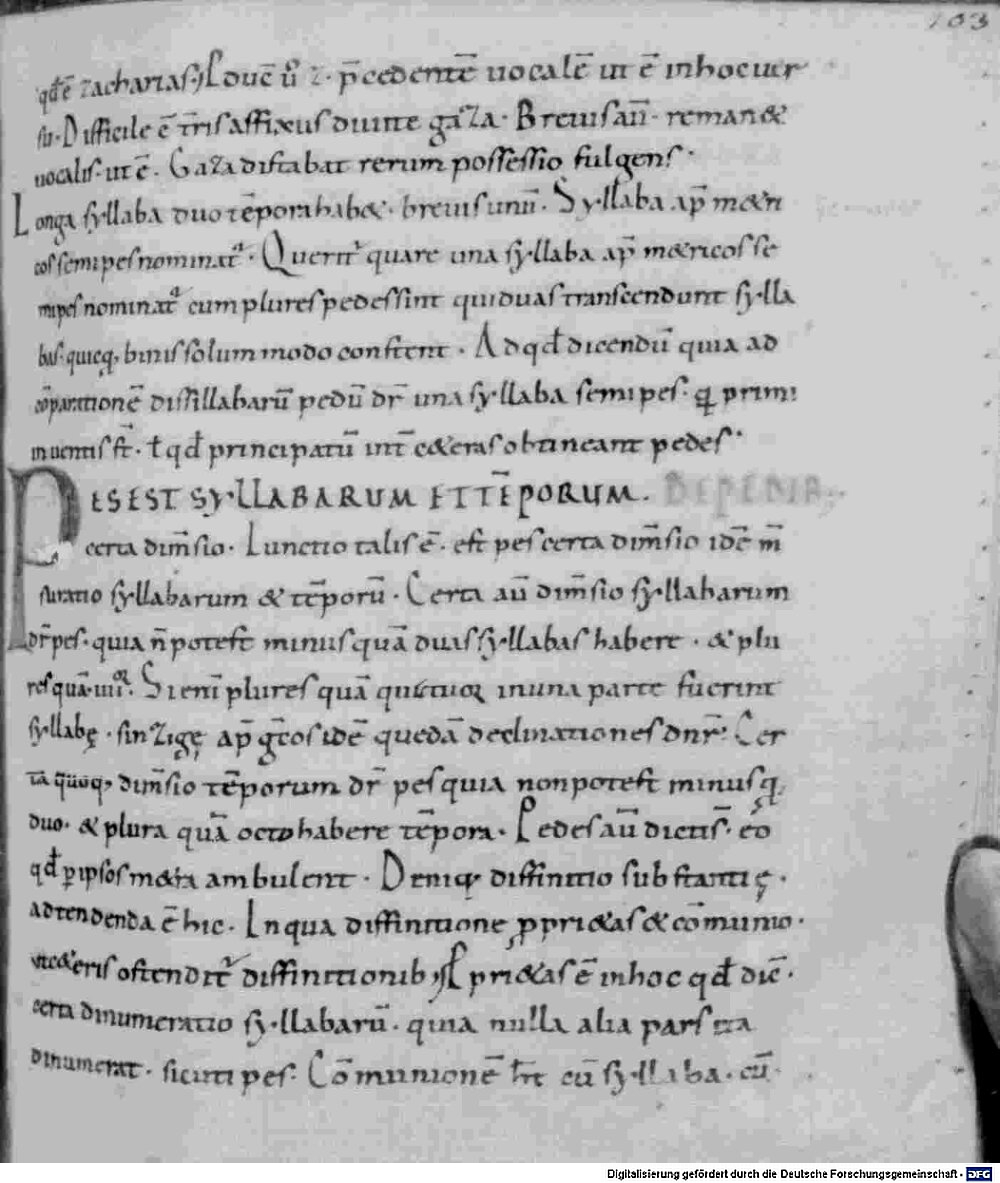 103
qđ ē zacharias; Longa v̊ ÷ p̄cedentē uocalē ut ē inhocuer
su· Difficile ē t̄risaffixusduitte gaza· Breuisaū· reman&
uocalis· ut ē· Gazadistabat rerum possessio fulgens·
Longa syllaba duotēporahab&· breuisunū· Syllaba ap̄ m&ri
cossemipesnominat᷑· Querit᷑ quare una syllaba ap̄ m&ricosse
mipes nominat᷑ cumplurespedessint quiduastranscendunt sylla
bas· quicq, binissolummodo constent· Adqđ dicendū quia ad
cōparationē dissillabarū pedū dr̄ una syllaba semipes· ꝗ primi
inuentis st̄· ł qđ principatū int̄ c&erasobtineant pedes·
PES EST SYLLABARUM ET TĒPORUM· DE PEDIB;
certa dim̄sio· Iunctio talis ē· est pescerta dim̄sio idē m̄
suratio syllabarum & tēporū· Certa aū dim̄sio syllabarum
dr̄ pes· quia n̄ potest minusquā duassyllabas habere· & plu
resquā·iiii᷑· Sienī plures quā quattuor inuna parte fuerint
syllabę· sinzigę ap̄ gr̄cos idē quedā declinationesdnr̄· Cer
tā quoq, dim̄sio tēporum dr̄ pes quia nonpotest minusq̄
duo· & plura quā octo habere tēpora· Pedesaū dictis· eō
qđ p̱ ipsos m&ra ambulent· Deniq; diffinitio substantię·
adtendenda ē hic· Inqua diffinitione ꝓpri&as & cōmunio·
uic&eris ostendit᷑ diffinitionib; Pri&as ē inhoc qđ dic̄·
certa dinumeratio syllabarū· quia nulla alia pars ita
dinumerat· sicuti pes· Cōmunionē h̄t cū syllaba· cū
Digitalisierung gefördert durch die Deutsche Forschungsgemeinschaft · DFG